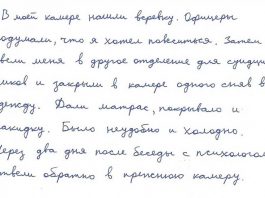 В моей камере нашли веревку. Офицеры
одумали, что я хотел повеситься. Затем
вели меня в другое отделение для суицидн
иков и закрыли в камере одного сняв в
дежду. Дали матрас, покрывало и
акидку. Было неудобно и холодно.
Через два дня после беседы с психологом
твели обратно в прежнюю камеру.